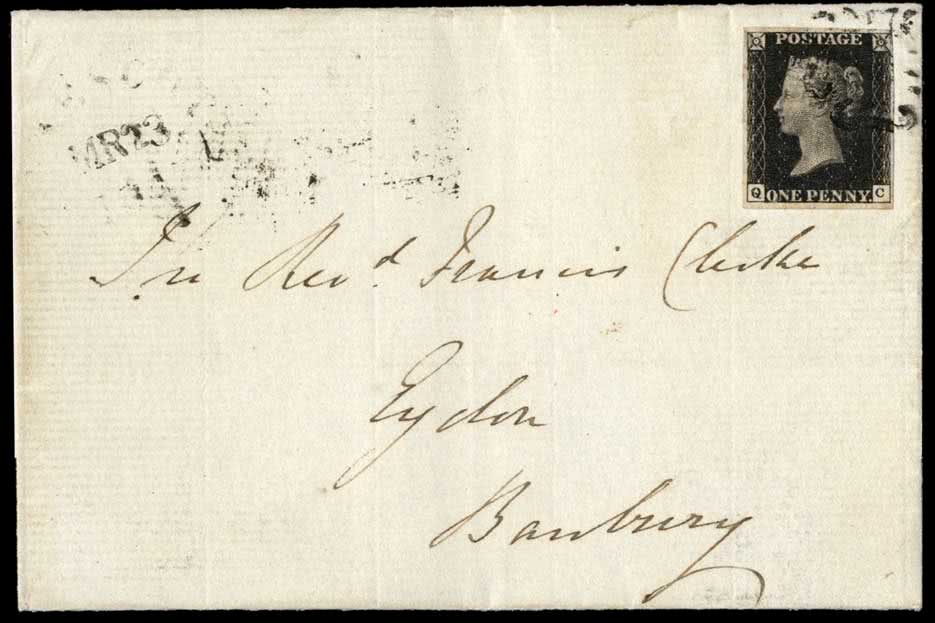 POSTAGE
MR23
Q ONE PENNY. C
The Revd. Francis Clerke
Eydon
Banbury